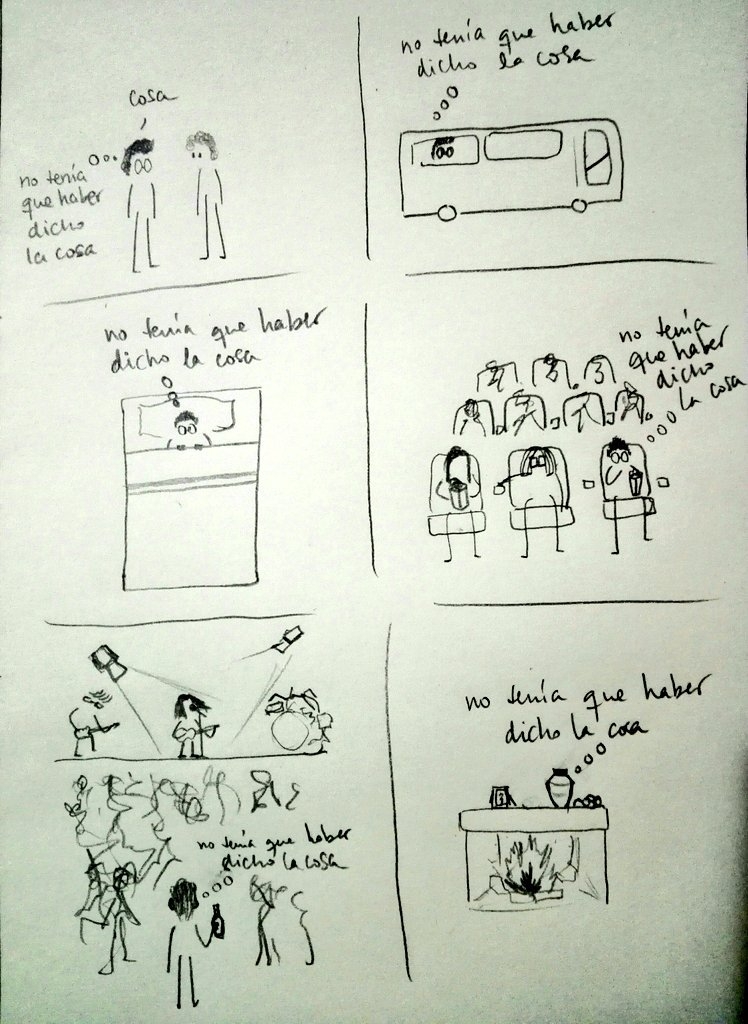 cosa
no tenía
que haber
dicho
la cosa
no tenía que haber
dicho la cosa
no tenía que haber
dicho la cosa
no tenía
que haber
dicho
la cosa
no tenía que haber
dicho la cosa
no tenía que haber
dicho la cosa